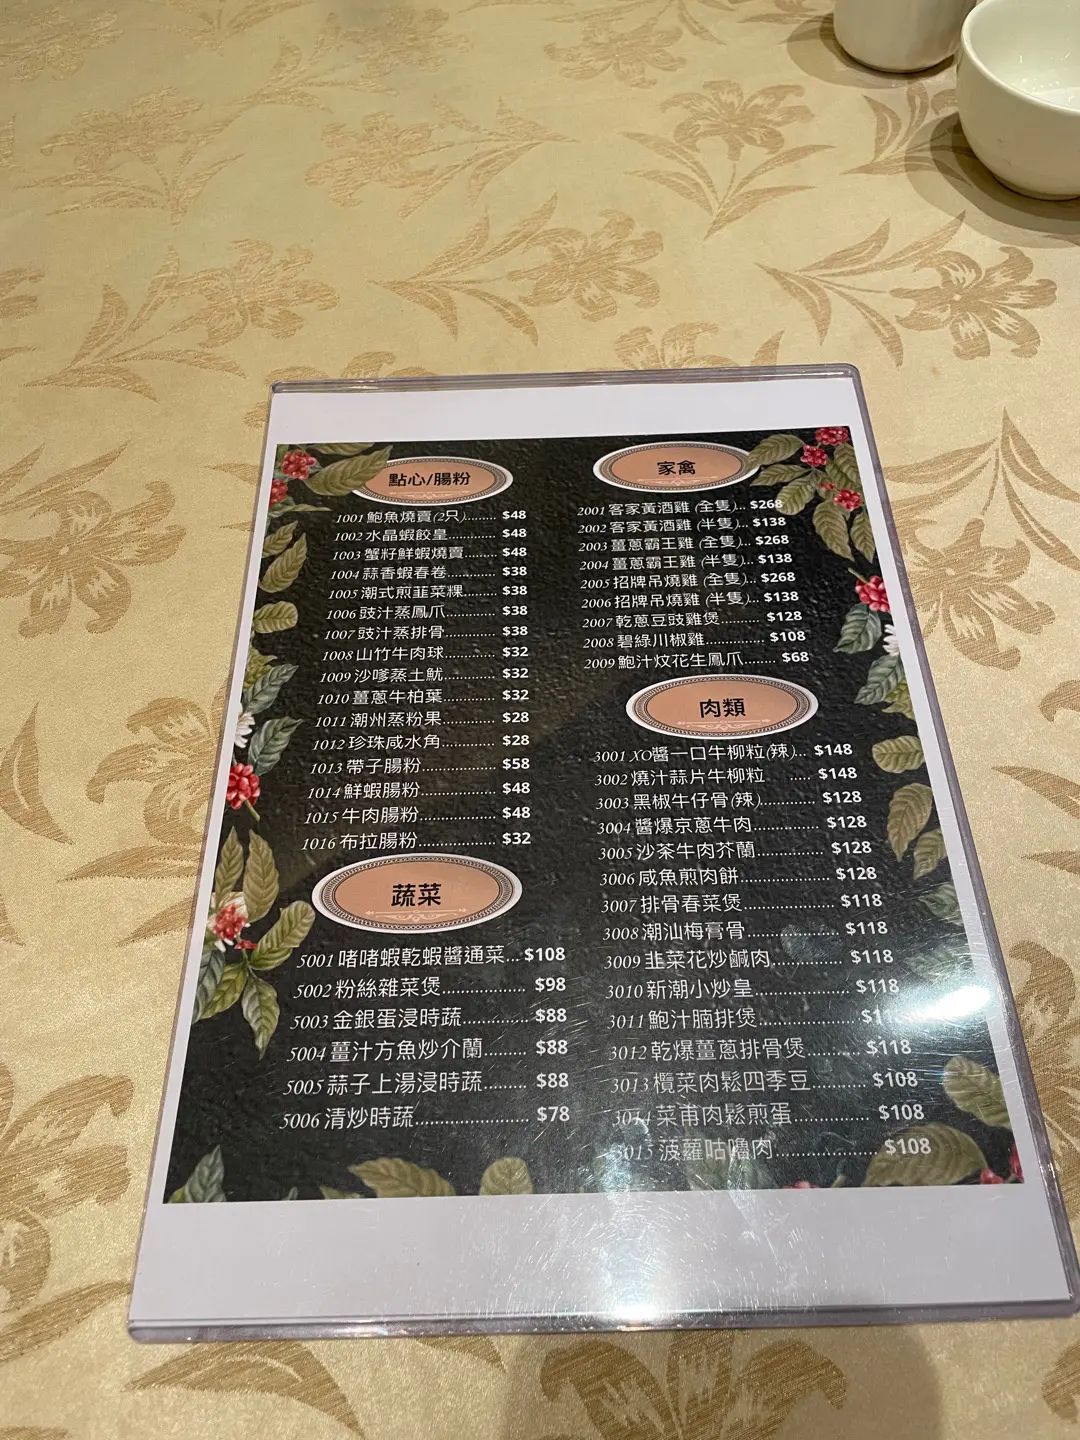 點心/腸粉
1001 鮑魚燒賣(2只)......... $48
1002 水晶蝦餃皇............ $48
1003 蟹籽鮮蝦燒賣........ $48
1004 蒜香蝦春卷............. $38
1005 潮式煎韮菜粿........ $38
1006 豉汁蒸鳳爪............ $38
1007 豉汁蒸排骨............ $38
1008 山竹牛肉球............ $32
1009 沙嗲蒸土魷............ $32
1010 薑蔥牛柏葉............ $32
1011 潮州蒸粉果............ $28
1012 珍珠咸水角............ $28
1013 帶子腸粉................. $58
1014 鮮蝦腸粉................. $48
1015 牛肉腸粉................. $48
1016 布拉腸粉................. $32
蔬菜
5001 啫啫蝦乾蝦醬通菜... $108
5002 粉絲雜菜煲................. $98
5003 金銀蛋浸時蔬............. $88
5004 薑汁方魚炒介蘭......... $88
5005 蒜子上湯浸時蔬......... $88
5006 清炒時蔬....................... $78
家禽
2001 客家黃酒雞 (全隻)... $268
2002 客家黃酒雞 (半隻)... $138
2003 薑蔥霸王雞 (全隻)... $268
2004 薑蔥霸王雞 (半隻)... $138
2005 招牌吊燒雞 (全隻)... $268
2006 招牌吊燒雞 (半隻)... $138
2007 乾蔥豆豉雞煲.......... $128
2008 碧綠川椒雞................ $108
2009 鮑汁炆花生鳳爪........ $68
肉類
3001 XO醬一口牛柳粒(辣)... $148
3002 燒汁蒜片牛柳粒 ..... $148
3003 黑椒牛仔骨(辣)............. $128
3004 醬爆京蔥牛肉.............. $128
3005 沙茶牛肉芥蘭.............. $128
3006 咸魚煎肉餅................... $128
3007 排骨春菜煲................... $118
3008 潮汕梅膏骨................... $118
3009 韭菜花炒鹹肉............... $118
3010 新潮小炒皇................... $118
3011 鮑汁腩排煲
3012 乾爆薑蔥排骨煲.......... $118
3013 欖菜肉鬆四季豆........... $108
3014 菜甫肉鬆煎蛋............... $108
3015 菠蘿咕嚕肉.................... $108